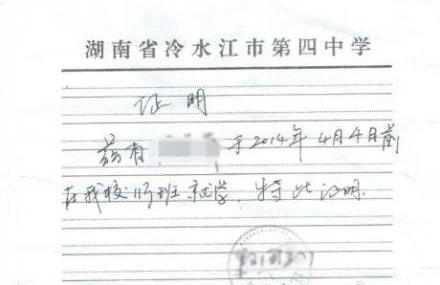 湖南省冷水江市第四中学
证明
兹有 于2014年4月4日前
在我校113班就学,特此证明.